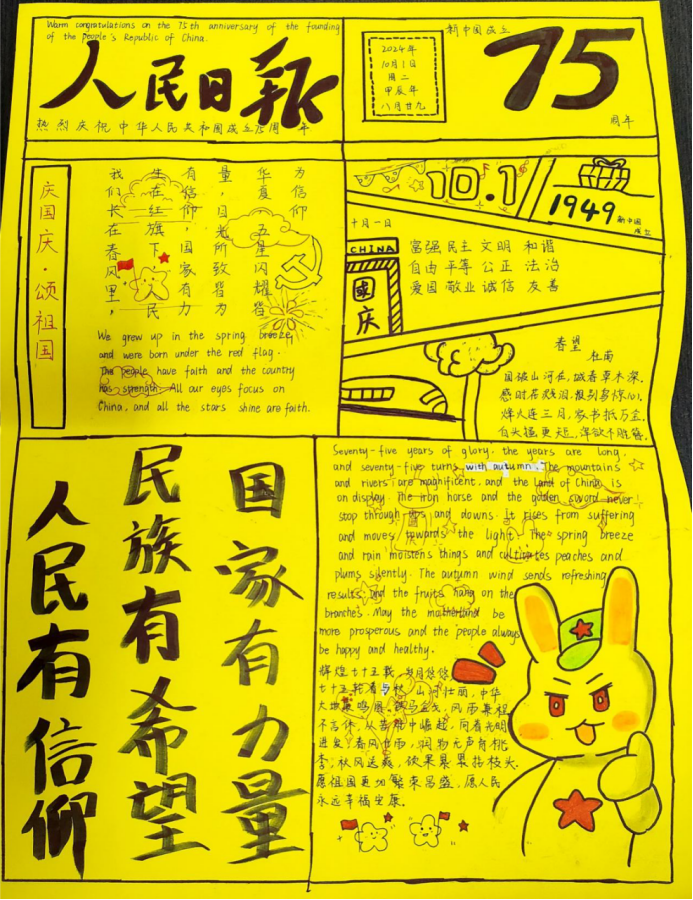 Warm congratulations on the 75th anniversary of the founding
of the People's Republic of China.
人民日報
热烈庆祝中华人民共和国成立75周年
2024年
10月1日
周二
甲辰年
八月廿九
新中国成立
75
周年
庆国庆·颂祖国
我们长在春风里，
生在红旗下，人民
有信仰，国家有力
量，目光所致皆为
华夏，五星闪耀皆
为信仰
We grew up in the spring breeze,
and were born under the red flag.
The people have faith and the country
has strength. All our eyes focus on
China, and all the stars shine are faith.
10.1
1949
新中国
成立
十月一日
CHINA
國
庆
富强 民主 文明 和谐
自由 平等 公正 法治
爱国 敬业 诚信 友善
春望
杜甫
国破山河在，城春草木深。
感时花溅泪，恨别鸟惊心。
烽火连三月，家书抵万金。
白头搔更短，浑欲不胜簪。
国家有力量
民族有希望
人民有信仰
Seventy-five years of glory, the years are long,
and seventy-five turns with autumn. The mountains
and rivers are magnificent, and the land of China is
on display. The iron horse and the golden sword never
stop through ups and downs. It rises from suffering
and moves towards the light. The spring breeze
and rain moistens things and cultivates peaches and
plums silently. The autumn wind sends refreshing
results, and the fruits hang on the
branches. May the motherland be
more prosperous and the people always
be happy and healthy.
辉煌七十五载，岁月悠悠，
七十五轮看与秋，山河壮丽，中华
大地展鸣展，铁马金戈，风雨兼程
不言休，从苦难中崛起，向着光明
进发，春风化雨，润物无声育桃
李，秋风送爽，硕果累累挂枝头，
愿祖国更加繁荣昌盛，愿人民
永远幸福安康。